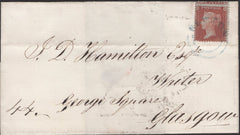 J. D. Hamilton Esqr
Writer
44. George Square
Glasgow